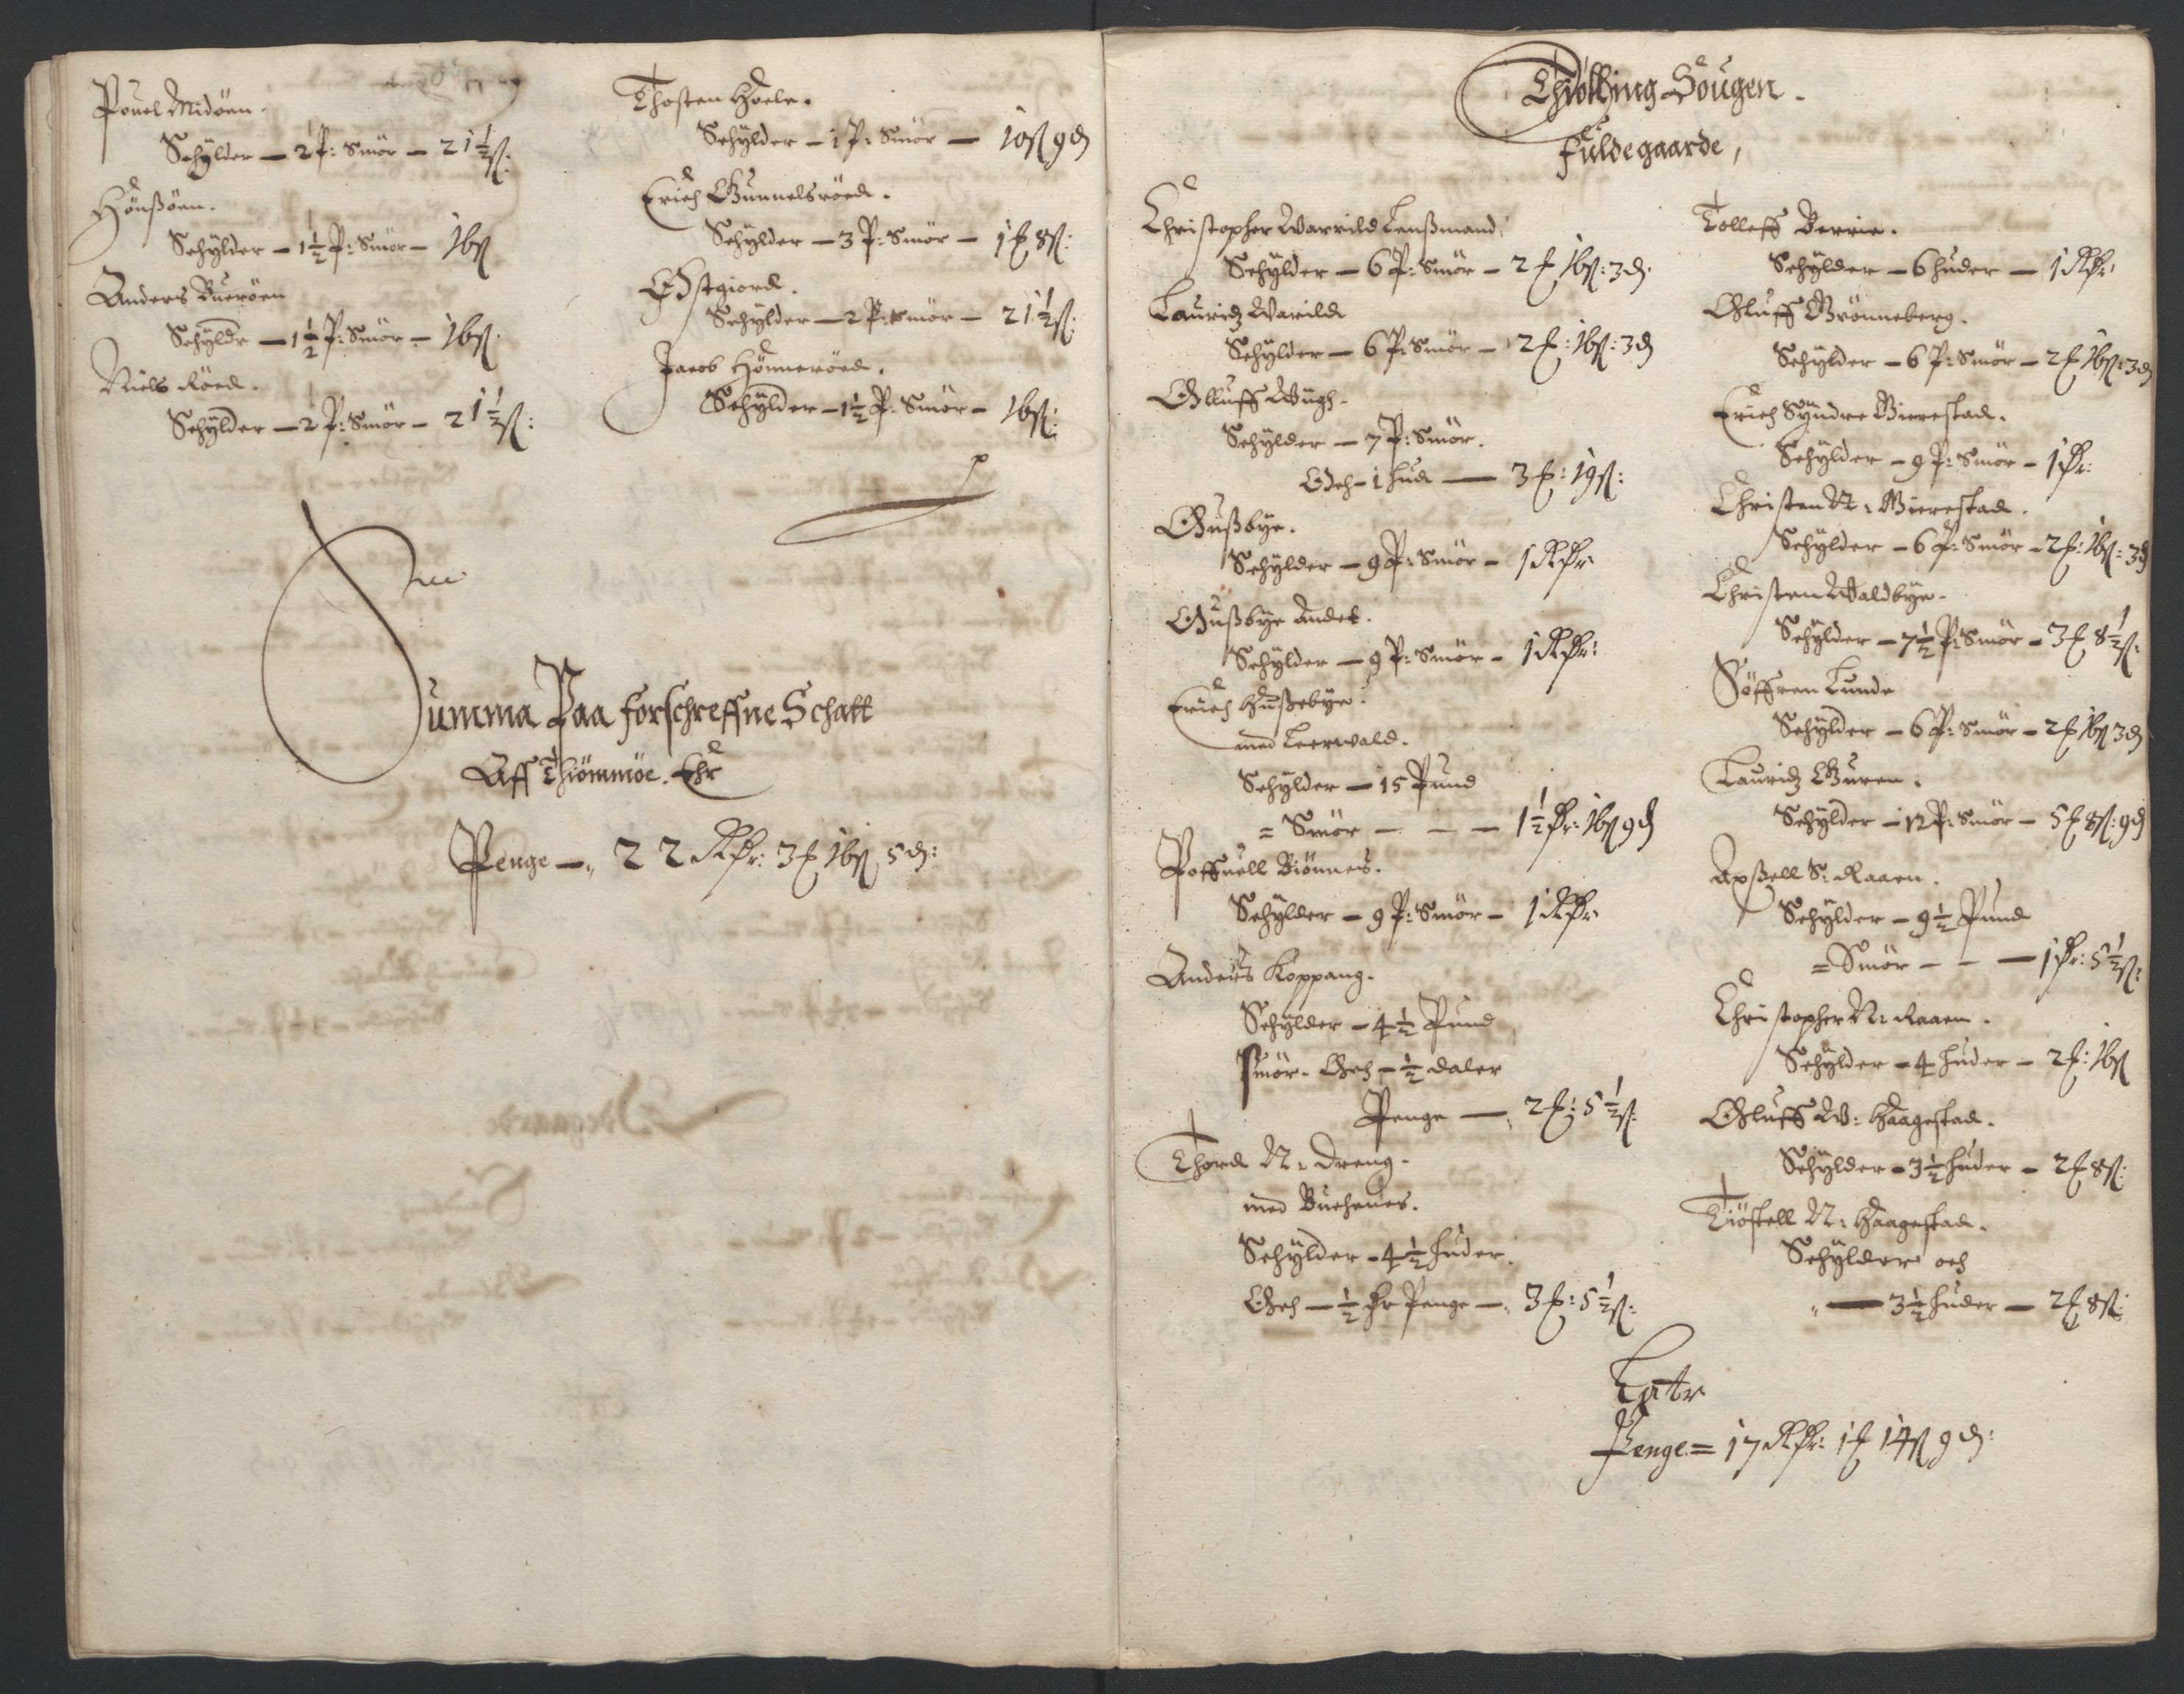 Pouel Midöen.
Schylder — 2 P: Smör — 21½ ß:
Hönßöen.
Schylder — 1½ P: Smör — 16 ß
Anders Bueröen
Schyldr — 1½ P: Smör — 16 ß.
Niels Röed.
Schylder — 2 P: Smör — 21½ ß:
Thosten Hoele.
Schylder — 1 P: Smör — 10 ß 9 d
Erich Gunnelsröed.
Schylder — 3 P: Smör — 1 f 8 ß:
Östgiord.
Schylder — 2 P: Smör — 21½ ß:
Jacob Hönneröed.
Schylder — 1½ P: Smör — 16 ß:
Summa Paa forschreffne Schatt
Aff Thiömmöe. Ehr
Penge — 22 Rdr: 3 f 16 ß 5 d:
Thiölling Sougen.
Fuldegaarde,
Christopher Warrild Lenßmand
Schylder — 6 P: Smör — 2 f 16 ß: 3 d.
Lauridz Warild
Schylder — 6 P: Smör — 2 f: 16 ß: 3 d
Olluff Wugh.
Schylder — 7 P: Smör.
Och — 1 hud — 3 f: 19 ß:
Gußbye.
Schylder — 9 P: Smör — 1 Rdr
Gußbye Andet.
Schylder — 9 P: Smör — 1 Rdr:
Erich Hußebye.
med Leerwald.
Schylder — 15 Pund
= Smör — — — 1½ dr: 16 ß 9 d
Poffuell Biönnes.
Schylder — 9 P: Smör — 1 Rdr
Anders Koppang.
Schylder — 4½ Pund
Smör. Och — ½ daler
Penge — 2 f: 5½ ß:
Thord N: Dreng.
med Buchenes.
Schylder — 4½ huder.
Och — ½ dr Penge — 3 f: 5½ ß:
Tolleff Berrie.
Schylder — 6 huder — 1 Rdr:
Oluff Grönneberg.
Schylder — 6 P: Smör — 2 f 16 ß: 3 d
Erich Syndre Bierestad.
Schylder — 9 P: Smör — 1 dr:
Christen N: Bierestad.
Schylder — 6 P: Smör — 2 f: 16 ß: 3 d
Christen Waldbye.
Schylder — 7½ P: Smör — 3 f 8½ ß:
Söffren Lunde
Schylder — 6 P: Smör — 2 f 16 ß 3 d
Lauridz Guren.
Schylder — 12 P: Smör — 5 f 8 ß: 9 d
Axßell S: Raaen.
Schylder — 9½ Pund
= Smör — — — 1 dr: 5½ ß:
Christopher N: Raaen.
Schylder — 4 huder — 2 f: 16 ß
Oluff W: Haagestad.
Schylder — 3½ huder — 2 f 8 ß:
Tiöstell N: Haagestad.
Schylder och
— 3½ huder — 2 f 8 ß:
Latr
Penge = 17 Rdr: 1 f 14 ß 9 d: